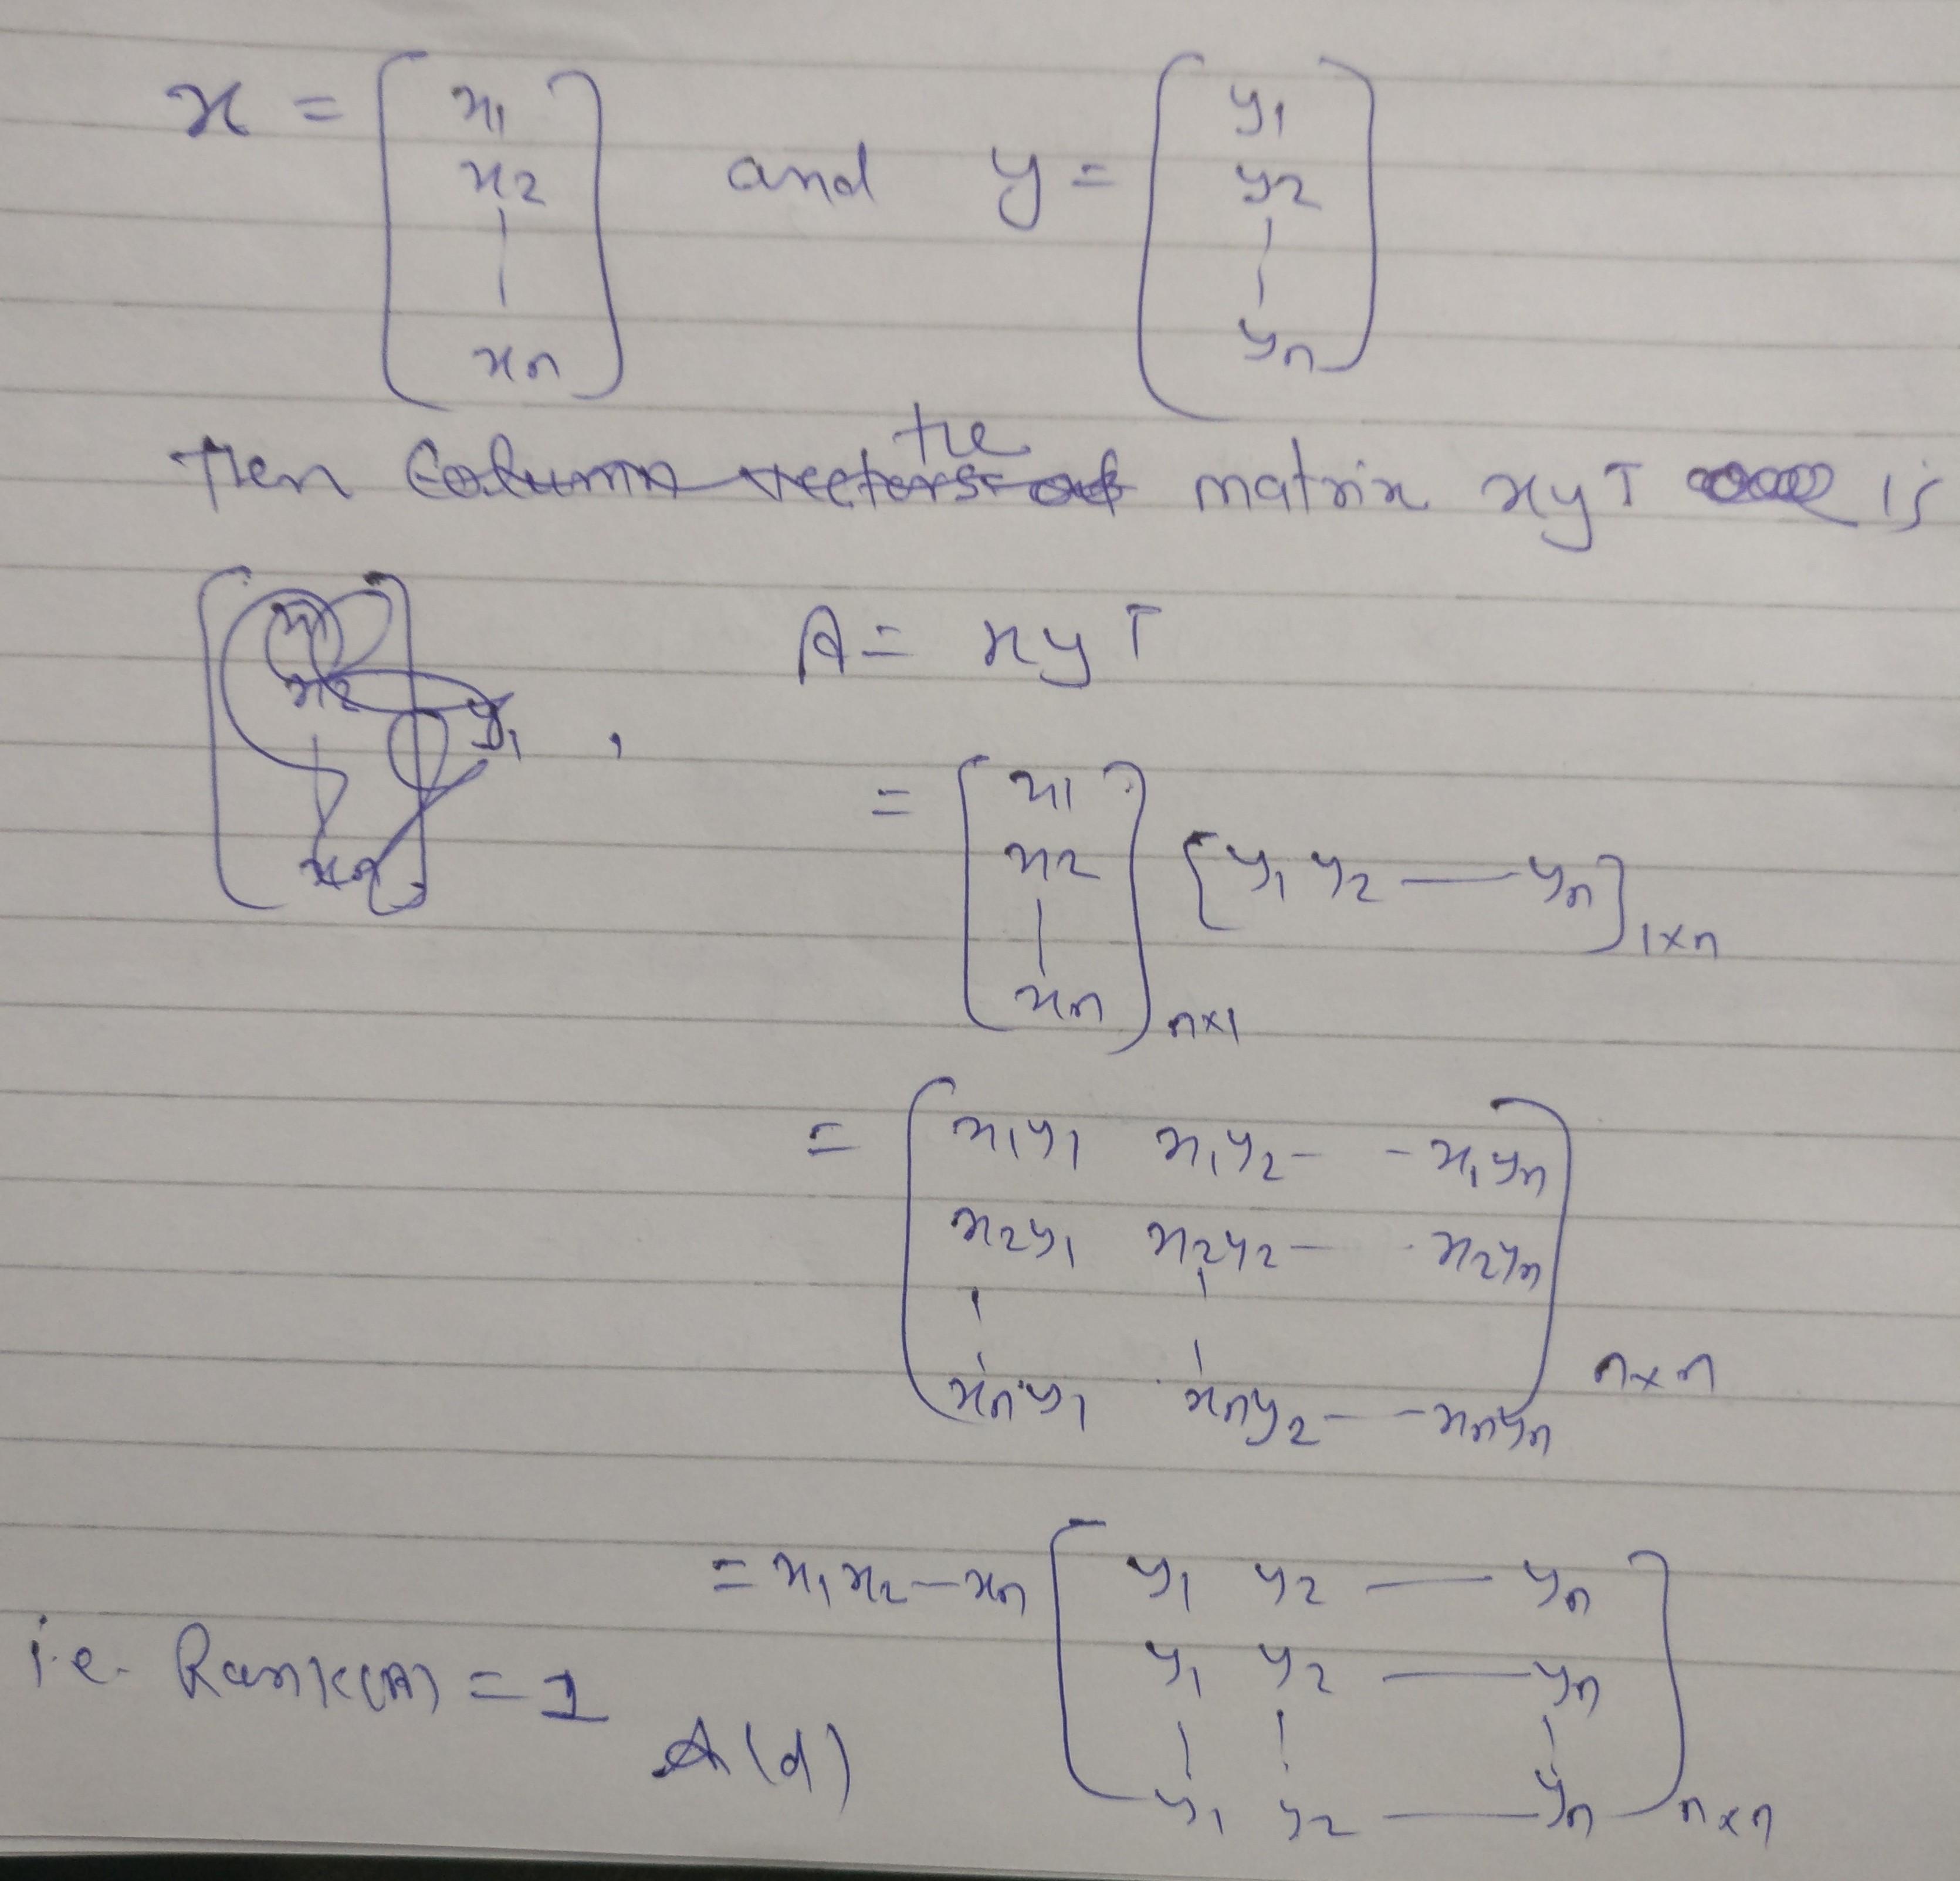 x = [ x1 x2 | xn ] and y = [ y1 y2 | yn ]
Then the matrix xyT is
A = xyT
= [ x1 x2 | xn ]n×1 [y1 y2 — yn]1×n
= [ x1y1 x1y2 - - x1yn
x2y1 x2y2 - - x2yn
xny1 xny2 - - xnyn ] n×n
= x1 x2 — xn [ y1 y2 — yn
y1 y2 — yn
y1 y2 — yn ] n×n
i.e. Rank(A) = 1
A(d)